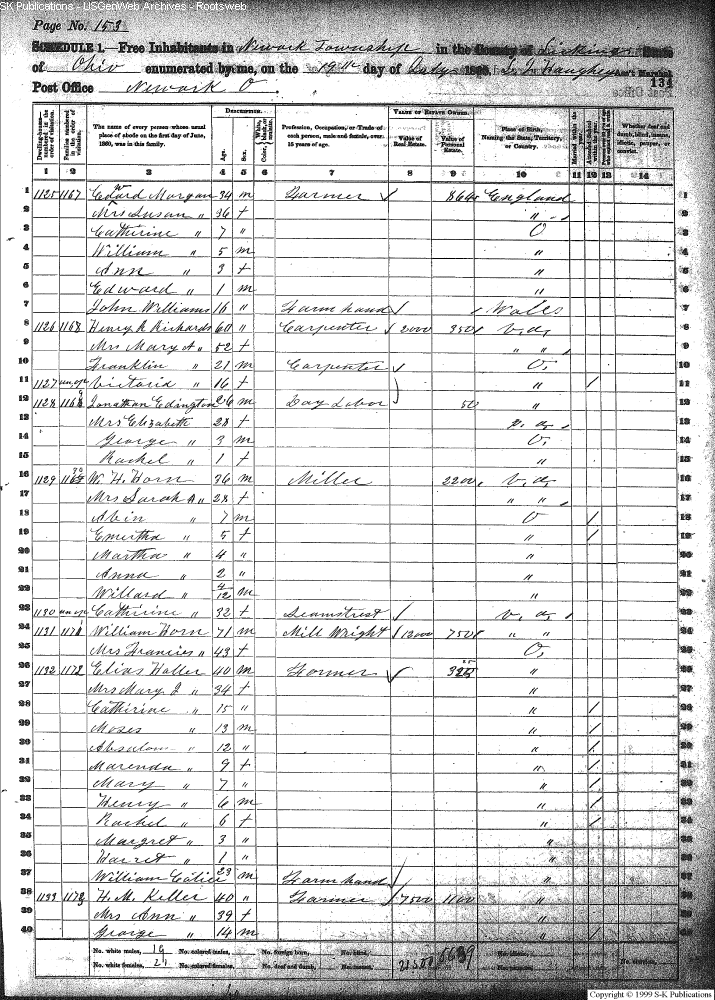 SK Publications - USGenWeb Archives - Rootsweb
Page No. 153
SCHEDULE 1.—Free Inhabitants in Newark Township in the County of Licking State
of Ohio enumerated by me, on the 19th day of July 1860. Ass't Marshal
134
Post Office Newark O.
Dwelling-houses—numbered in the order of visitation. Families numbered in the order of visitation. The name of every person whose usual place of abode on the first day of June, 1860, was in this family. DESCRIPTION. Age. Sex. Color, Profession, Occupation, or Trade of each person, male and female, over 15 years of age. VALUE OF ESTATE OWNED. Value of Real Estate. Value of Personal Estate. Place of Birth, Naming the State, Territory, or Country. Married within the year. Whether deaf and dumb, blind, insane, idiotic, pauper, or convict.
1 2 3 4 5 6 7 8 9 10 11 12 13 14
1 1125 1167 Edward Morgan 34 m Farmer 864 England
2 Mrs Susan " 36 f "
3 Catherine " 7 " O
4 William " 5 m "
5 Ann " 3 f "
6 Edward " 1 m "
7 John Williams 16 " Farm hand / Wales
8 1126 1168 Henry R Richards 60 " Carpenter 2000 350 V,a,
9 Mrs Mary A " 52 f " "
10 Franklin " 21 m Carpenter O,
11 1127 un,op Victoria " 16 f " /
12 1128 1169 Jonathan Edington 26 m Day Labor 50 "
13 Mrs Elizabeth 28 f V,a,
14 George " 3 m O,
15 Rachel " 1 f "
16 1129 1170 W. H. Horn 36 m Miller 2200 V,a,
17 Mrs Sarah A " 28 f " "
18 Abin " 7 m O /
19 Emertha " 5 f " /
20 Martha " 4 " "
21 Anna " 2 " "
22 Willard " 4/12 m "
23 1130 un,op Catherine " 32 f Seamstrest V,a,
24 1131 1171 William Horn 71 m Mill Wright 12000 750 " "
25 Mrs Francies " 43 f O,
26 1132 1172 Elias Haller 40 m Farmer 325 "
27 Mrs Mary J " 34 f "
28 Catherine " 15 " " /
29 Moses " 13 m " /
30 Absalom " 12 " " /
31 Marenda " 9 f " /
32 Mary " 7 " " /
33 Henry " 6 m " /
34 Rachel " 6 f " /
35 Margret " 3 " "
36 Harret " 1 " "
37 William 23 m Farm hand "
38 1133 1173 H. M. Keller 40 " Farmer 7500 1100 "
39 Mrs Ann " 39 f "
40 George " 14 m " /
No. white males, 19 No. colored males, No. foreign born, No. blind,
No. white females, 21 No. colored females, No. deaf and dumb, No. insane, 21500 6639 No. idiotic, No. paupers, No. convicts,
Copyright © 1999 S-K Publications